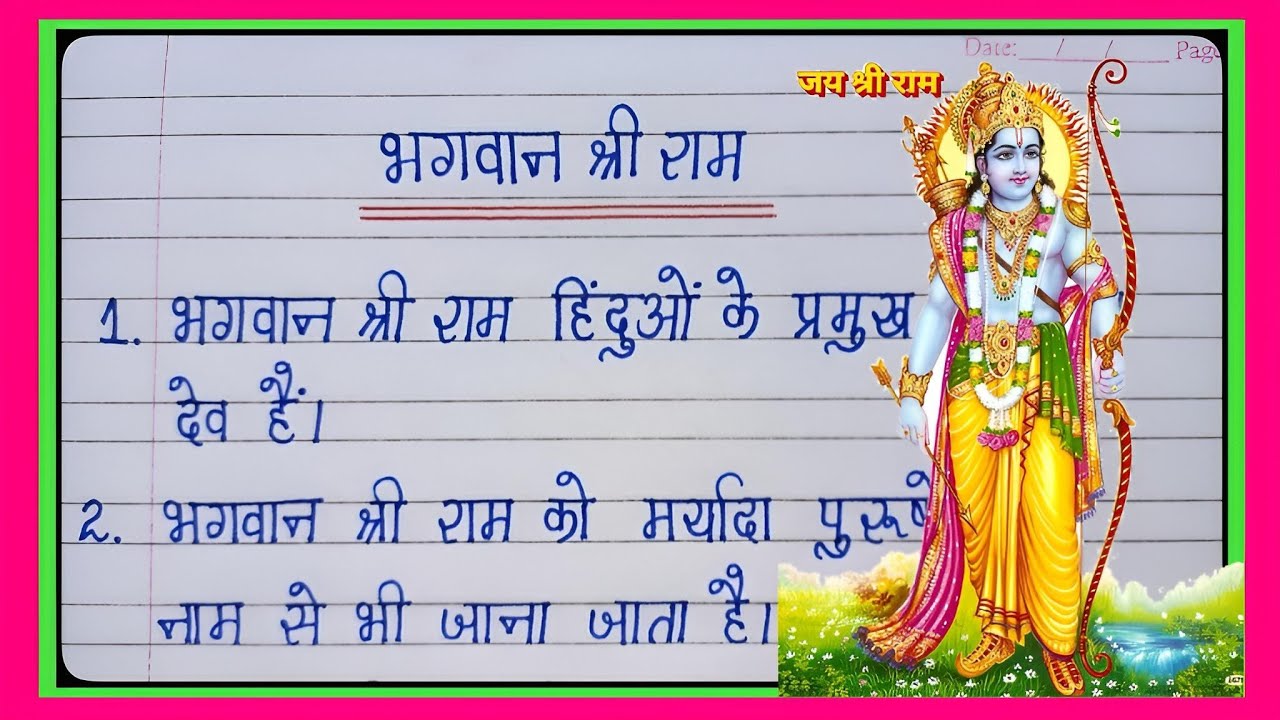 Date: __/__/____ Page
जय श्री राम
भगवान श्री राम
1. भगवान श्री राम हिंदुओं के प्रमुख
देव हैं।
2. भगवान श्री राम को मर्यादा
नाम से भी जाना जाता है।